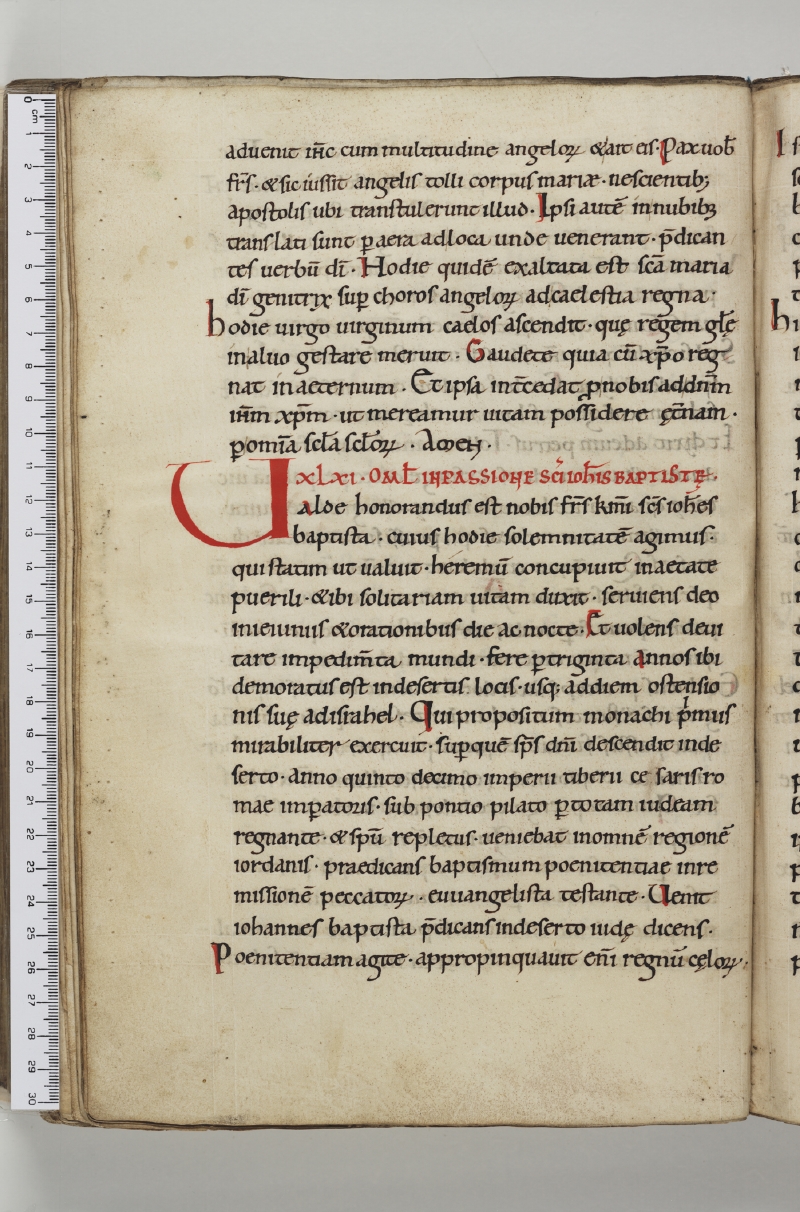 aduenit ih̄c cum multitudine angeloꝝ & ait eis· Pax uob̄
fr̄s· & sic iussit angelis tolli corpus mariæ· nescientib;
apostolis ubi transtulerunt illud· Ipsi autē innubibꝫ
translati sunt ꝑ aera ad loca unde uenerant· p̄dican
tes uerbū dī· Hodie quidē exaltata est sc̄a maria
dī genitrix sup̄ choros angeloꝝ ad caelestia regna·
hodie uirgo uirginum caelos ascendit· quę regem glę̄
in aluo gestare meruit· Gaudete quia cū xp̄o reg
nat in aeternum· Et ipsa int̄cedat ꝓ nobis ad dn̄m
nr̄m xp̄m· ut mereamur uitam possidere ęt̄nam·
ꝑ omīa scl̄a scl̄oꝝ· Amen·
xLxi· OML̄ IN PASSIONE SC̄I IOH̄IS BAPTISTĘ·
Ualde honorandus est nobis fr̄s km̄i sc̄s ioh̄es
baptista· cuius hodie solemnitatē agimus·
qui statim ut ualuit· heremū concupiuit in aetate
puerili· & ibi solitariam uitam duxit· seruiens deo
in ieiuniis & orationibus die ac nocte· Et uolens deui
tare impedim̄ta mundi· fere ꝑ triginta annos ibi
demoratus est in desertis locis· usq; ad diem ostensio
nis suę ad israhel· Qui propositum monachi pⁱmus
mirabiliter exercuit· sup̄ quē sp̄s dn̄i descendit in de
serto· anno quinto decimo imperii tiberii ce saris ro
mae imꝑatoris· sub pontio pilato ꝑ totam iudeam
regnante· & sp̄ū repletus· ueniebat in omnē regionē
iordanis· praedicans baptismum poenitentiae in re
missionē peccatoꝝ· euuangelista testante· Uenit
iohannes baptista p̄dicans in deserto iudę dicens·
Poenitentiam agite· appropinquauit eni̅ regnū cęloꝝ·